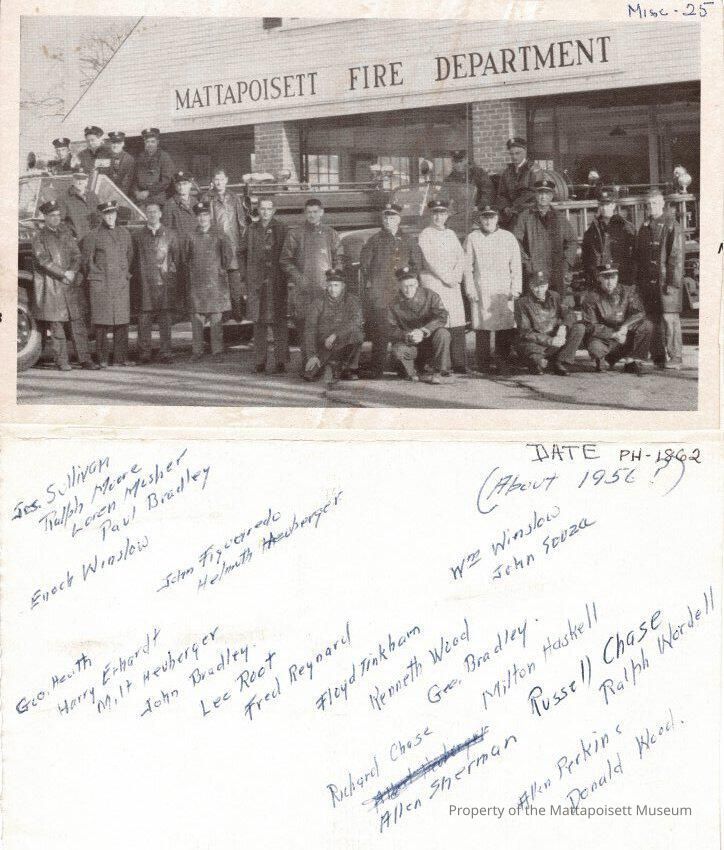 Misc - 25
MATTAPOISETT FIRE DEPARTMENT
DATE PH-1862
(About 1956?)
Jos. Sullivan
Ralph Moore
Loren Mosher
Paul Bradley
Enoch Winslow
John Figueredo
Helmuth Heuberger
Wm Winslow
John Souza
Geo. Heath
Harry Erhardt
Milt Heuberger
John Bradley.
Lee Root
Fred Reynard
Floyd Tinkham
Kenneth Wood
Geo. Bradley.
Milton Haskell
Russell Chase
Ralph Wordell
Richard Chase
Allen Sherman
Allen Perkins
Donald Wood.
Property of the Mattapoisett Museum